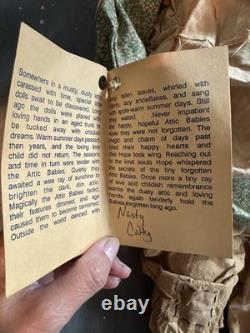 Somewhere in a musty, dusty
caressed with time, special little
dolls await to be discovered. Long
ago the dolls were placed with
loving hands in an aged trunk to
be tucked away with childhood
dreams. Warm summer days passed,
then years, and the loving little
child did not return. The seasons
and time in turn were tender with
the Attic Babies. Quietly they
awaited a wee ray of sunshine to
brighten the dark, dim attic.
Magically the Attic Babies faded,
their features dimmed, and age
caused them to become tarnished.
Outside the world danced with
fallen leaves, whirled with
icy snowflakes, and sang
with apple-warm summer days. Still
they waited. Never impatient
the happy, hopeful Attic Babies
knew they were not forgotten. The
magic and charm of days past
filled their happy hearts and
their Hope took wing. Reaching out
to the kind souls Hope whispered
the secrets of the tiny forgotten
Attic Babies. Once more a tiny ray
of love and childish remembrance
the dusty attic and loving
again tenderly hold the
Babies forgotten long ago.
Nasty
Cathy